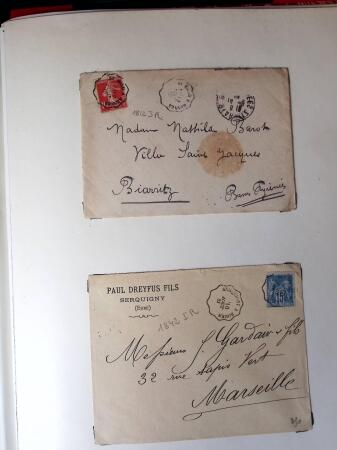 1812 I R
Madame Mathilde Barot
Villa Saint Jacques
Biarritz
Basses Pyrénées
PAUL DREYFUS FILS
SERQUIGNY
(Eure)
1842 I R
15
Messieurs J. Gardair & fils
32 rue Tapis Vert
Marseille